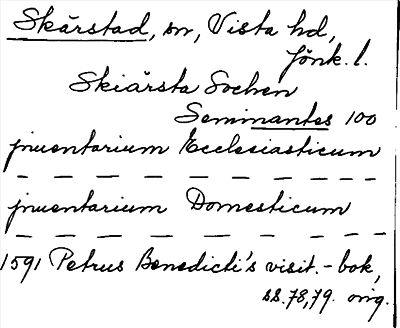 Skärstad, sn, Vista hd,
Jönk. l.
Skiärsta Sochen
Seminantes 100
jnuentarium Ecclesiasticum
— — — — — — — — — — —
jnuentarium Domesticum
— — — — — — — — — — —
1591 Petrus Benedicti's visit.-bok,
ss. 78, 79. orig.